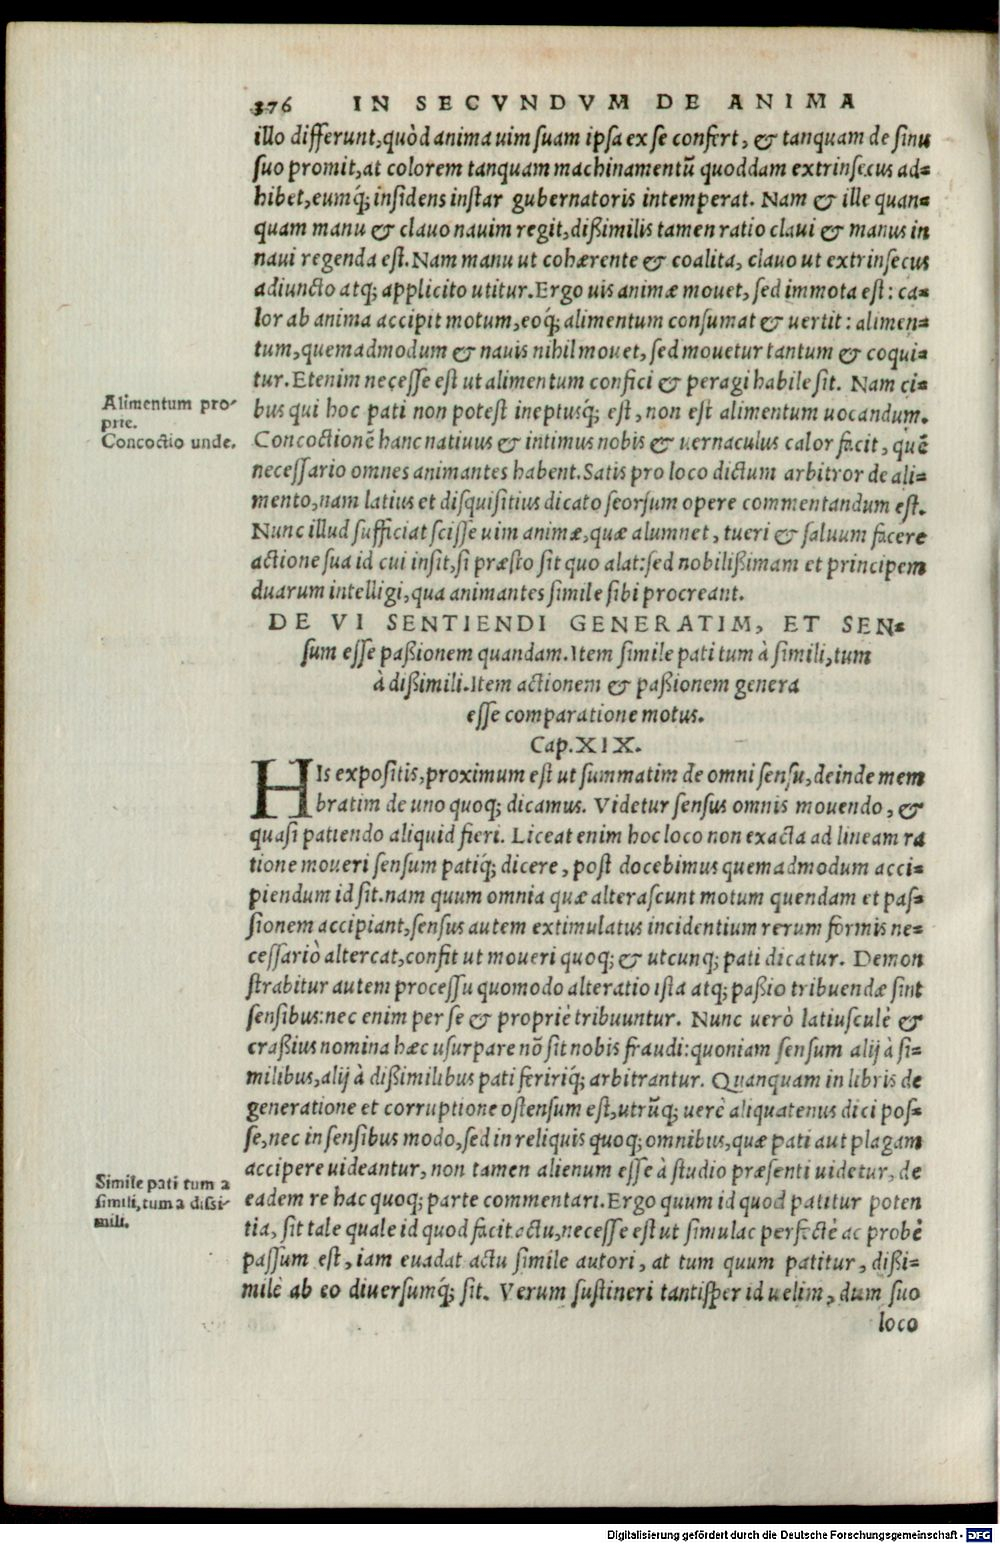 376 IN SECVNDVM DE ANIMA
illo differunt,quòd anima uim suam ipsa ex se confert, & tanquam de sinu
suo promit,at colorem tanquam machinamentū quoddam extrinsecus ad=
hibet,eumq́; insidens instar gubernatoris intemperat. Nam & ille quan=
quam manu & clauo nauim regit,dißimilis tamen ratio claui & manus in
naui regenda est. Nam manu ut cohærente & coalita, clauo ut extrinsecus
adiuncto atq; applicito utitur. Ergo uis animæ mouet, sed immota est: ca=
lor ab anima accipit motum,eoq́; alimentum consumat & uertit: alimen=
tum,quemadmodum & nauis nihil mouet, sed mouetur tantum & coqui=
tur. Etenim necesse est ut alimentum confici & peragi habile sit. Nam ci=
Alimentum pro-
prie.
bus qui hoc pati non potest ineptusq́; est, non est alimentum uocandum.
Concoctio unde.
Concoctionē hanc natiuus & intimus nobis & uernaculus calor facit, quē
necessario omnes animantes habent. Satis pro loco dictum arbitror de ali=
mento,nam latius et disquisitius dicato seorsum opere commentandum est.
Nunc illud sufficiat scisse uim animæ,quæ alumnet, tueri & saluum facere
actione sua id cui insit,si præsto sit quo alat:sed nobilißimam et principem
duarum intelligi,qua animantes simile sibi procreant.
DE VI SENTIENDI GENERATIM, ET SEN=
sum esse paßionem quandam. Item simile pati tum à simili,tum
à dißimili. Item actionem & paßionem genera
esse comparatione motus.
Cap. XIX.
HIs expositis,proximum est ut summatim de omni sensu,deinde mem
bratim de uno quoq; dicamus. Videtur sensus omnis mouendo, &
quasi patiendo aliquid fieri. Liceat enim hoc loco non exacta ad lineam ra
tione moueri sensum patiq́; dicere, post docebimus quemadmodum acci=
piendum id sit. nam quum omnia quæ alterascunt motum quendam et pas=
sionem accipiant,sensus autem extimulatus incidentium rerum formis ne=
cessariò altercat,confit ut moueri quoq; & utcunq; pati dicatur. Demon
strabitur autem processu quomodo alteratio ista atq; paßio tribuendæ sint
sensibus:nec enim per se & propriè tribuuntur. Nunc uerò latiusculè &
craßius nomina hæc usurpare nō sit nobis fraudi:quoniam sensum alij à si=
milibus,alij à dißimilibus pati feririq́; arbitrantur. Quanquam in libris de
generatione et corruptione ostensum est,utrūq; uerè aliquatenus dici pos=
se,nec in sensibus modo,sed in reliquis quoq; omnibus,quæ pati aut plagam
accipere uideantur, non tamen alienum esse à studio præsenti uidetur, de
Simile pati tum a
simili,tum a dissi-
mili.
eadem re hac quoq; parte commentari. Ergo quum id quod patitur poten
tia, sit tale quale id quod facit actu,necesse est ut simulac perfectè ac probè
passum est, iam euadat actu simile autori, at tum quum patitur, dißi=
milè ab eo diuersumq́; sit. Verum sustineri tantisper id uelim, dum suo
loco
Digitalisierung gefördert durch die Deutsche Forschungsgemeinschaft - DFG